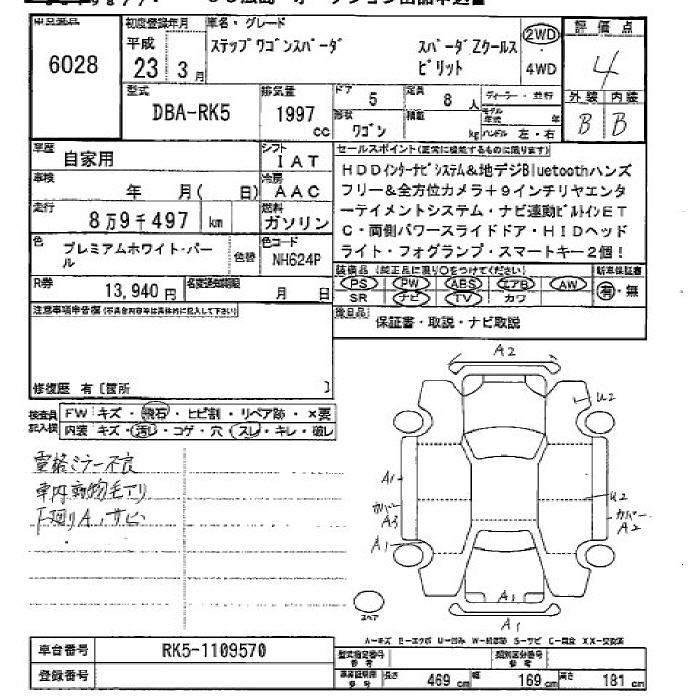 6028
初度登録年月
平成
23 3月
車名・グレード
ステップワゴンスパーダ
スパーダZクールス
ピリット
2WD
4WD
評価点
4
外装 内装
B B
型式
DBA-RK5
排気量
1997
cc
ドア
5
定員
8 人
ディーラー・並行
モデル年式 年
形状
ワゴン
積載
kg
ハンドル 左・右
車歴
自家用
シフト
IAT
車検
年 月( 日)
冷房
AAC
走行
8万9千497 km
燃料
ガソリン
色
プレミアムホワイト・パール
色替
色コード
NH624P
R券
13,940円
名変通知期限
月 日
セールスポイント(正常に機能するものに限ります)
HDDインターナビシステム&地デジBluetoothハンズ
フリー&全方位カメラ+9インチリヤエンタ
ーテイメントシステム・ナビ連動ビルトインET
C・両側パワースライドドア・HIDヘッド
ライト・フォグランプ・スマートキー2個!
装備品(純正品に限り○をつけてください)
新車保証書
PS PW ABS エアB AW
有・無
SR ナビ TV カワ
後日品
保証書・取説・ナビ取説
注意事項申告欄(不具合内容等は具体的に記入して下さい)
修復歴 有[箇所 ]
検査員
記入欄
FW キズ・飛石・ヒビ割・リペア跡・×要
内装 キズ・汚れ・コゲ・穴・スレ・キレ・破レ
電格ミラー不良
車内動物毛アリ
下廻りA、サビ
A2
U2
A1
カバー
A3
A1
U2
カバー
A2
A1
A1
スペア
A-キズ E-エクボ U-凹み W-補修跡 S-サビ C-腐食 XX-交換済
車台番号
RK5-1109570
登録番号
型式指定番号
参考
類別区分番号
参考
車検証明用
参考
長さ 469 cm 幅 169 cm 高さ 181 cm